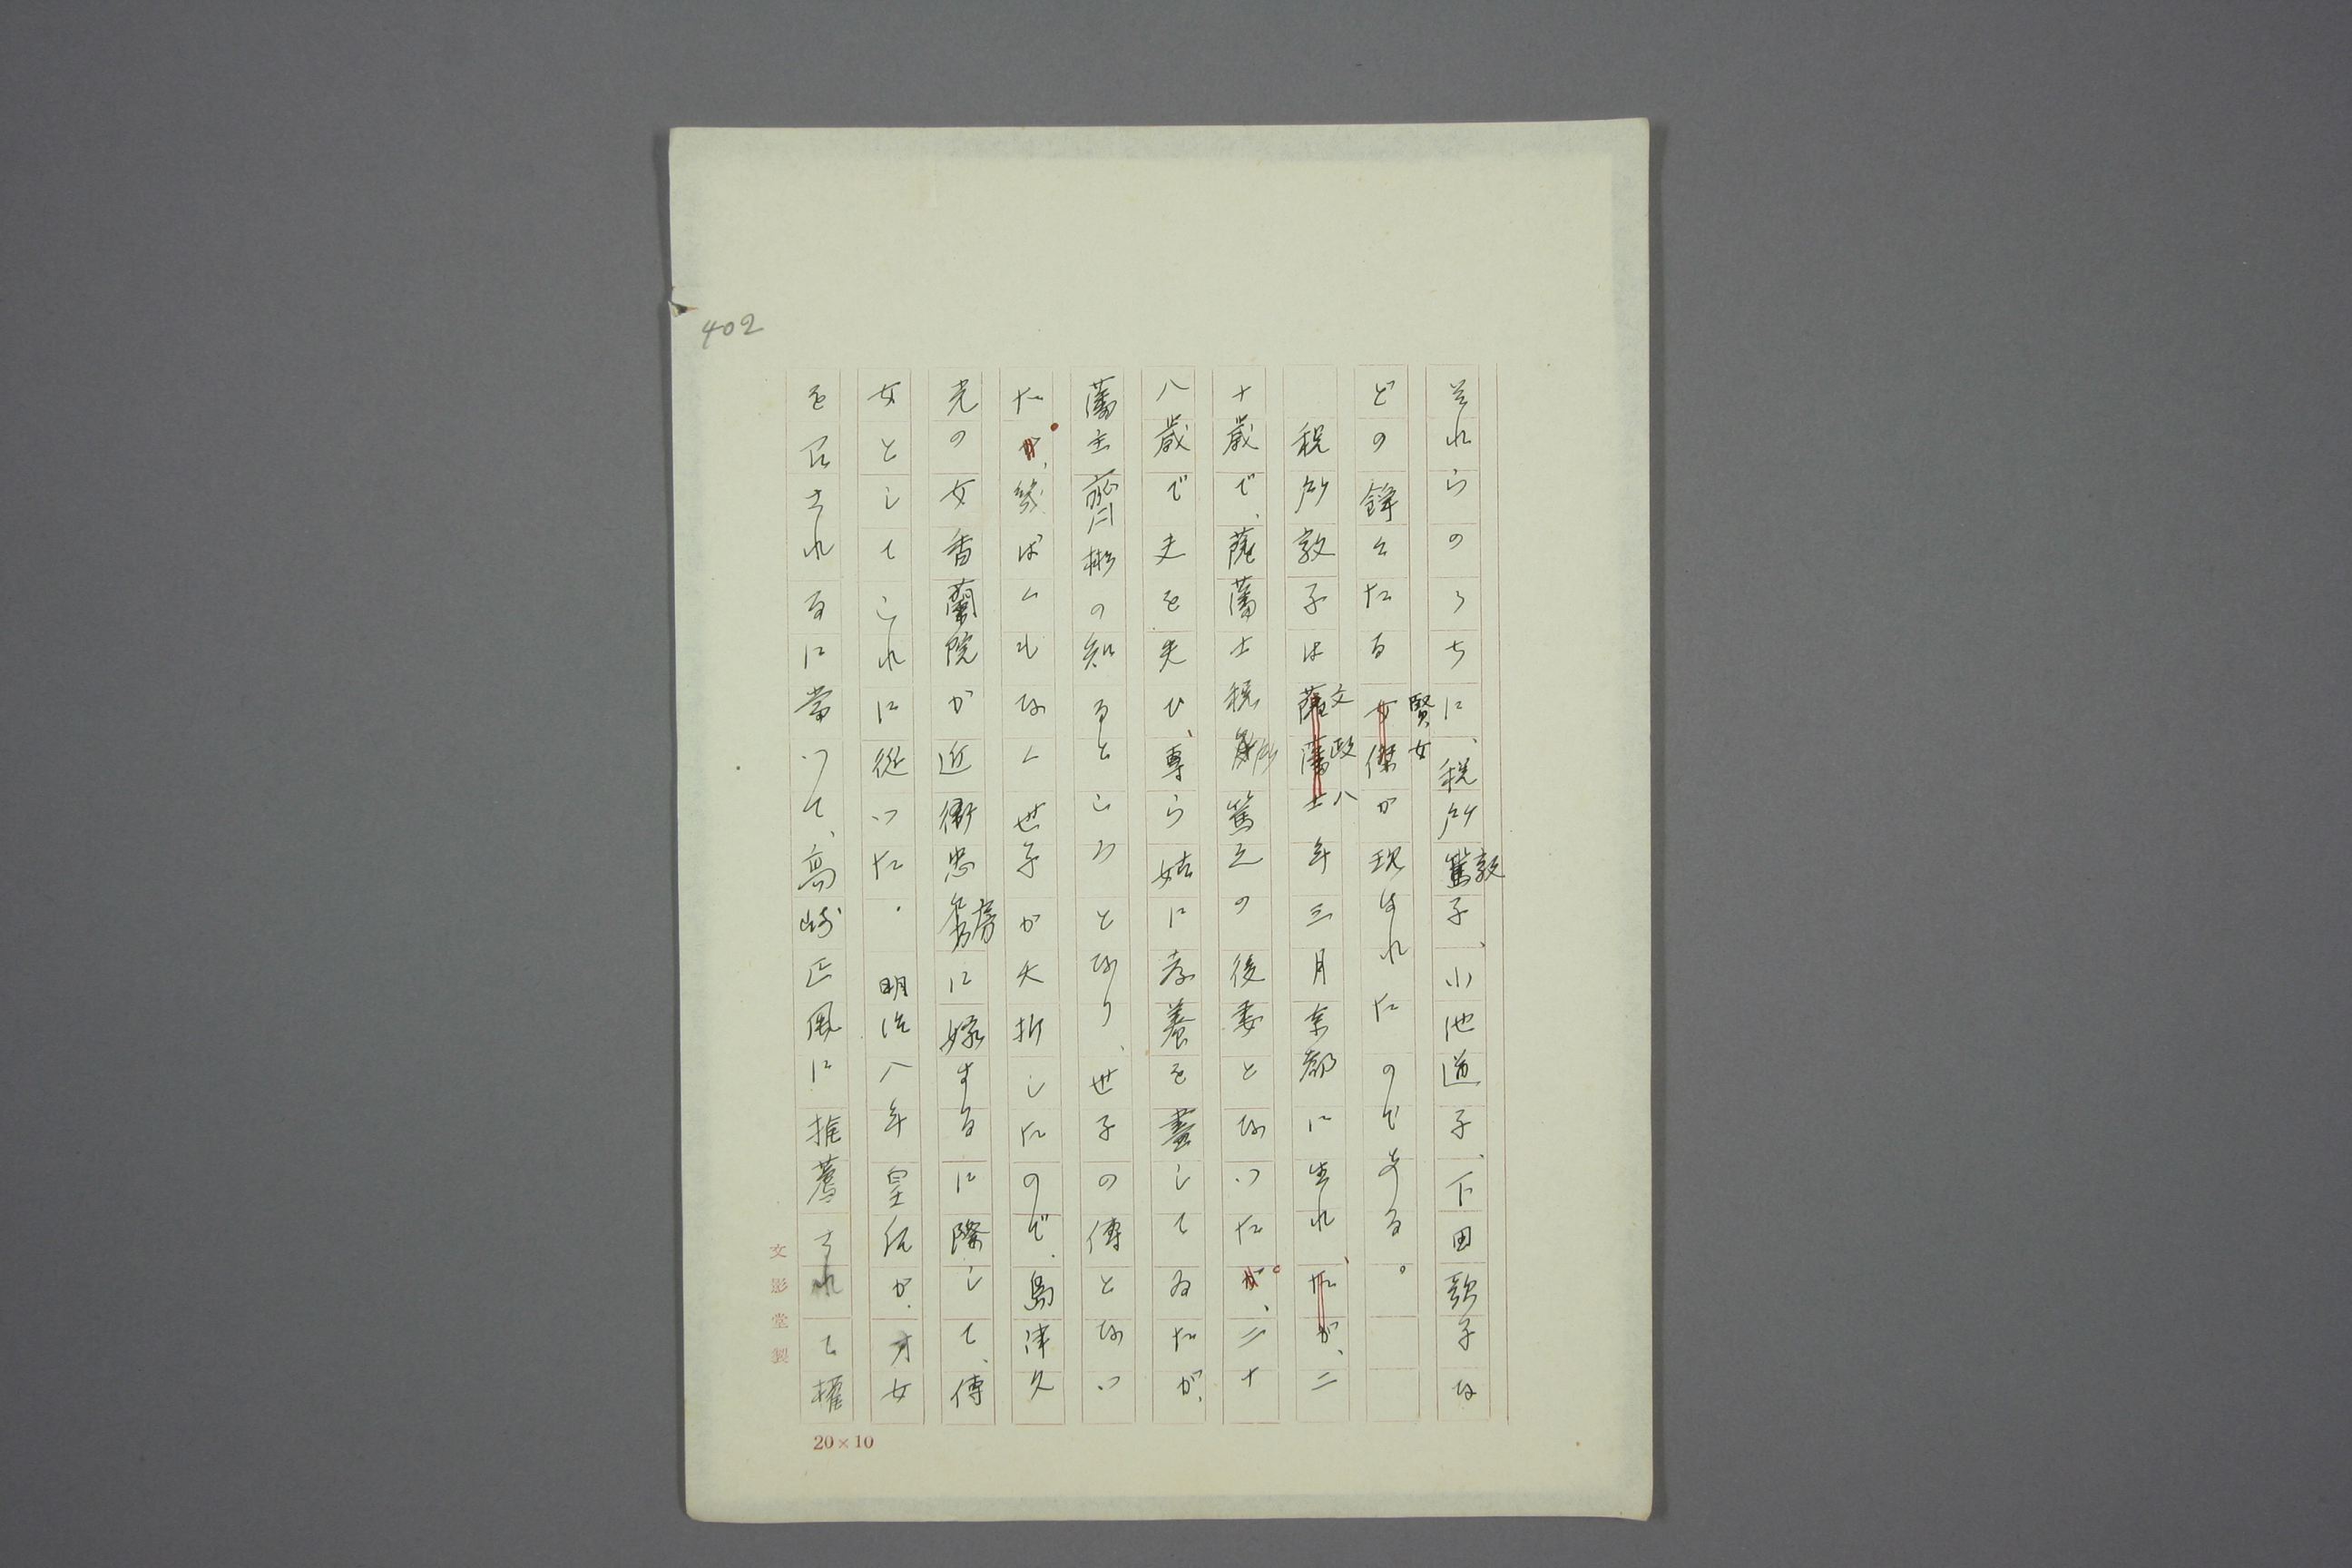 402
それらのうちに、税所敦子、小池道子、下田歌子な
どの錚々たる賢女が現はれたのである。
税所敦子は文政八年三月京都に生れ、二
十歳で、薩藩士税所篤之の後妻となつた。二十
八歳で夫を失ひ、専ら姑に孝養を盡してゐたが、
藩主齊彬の知るところとなり、世子の傅となつ
た。幾ばくもなく世子が夭折したので、島津久
光の女香蘭院が近衛忠房に嫁するに際して、傅
女としてこれに從つた。明治八年皇后が、才女
を召されるに當つて、高崎正風に推薦されて權
文影堂製
20×10